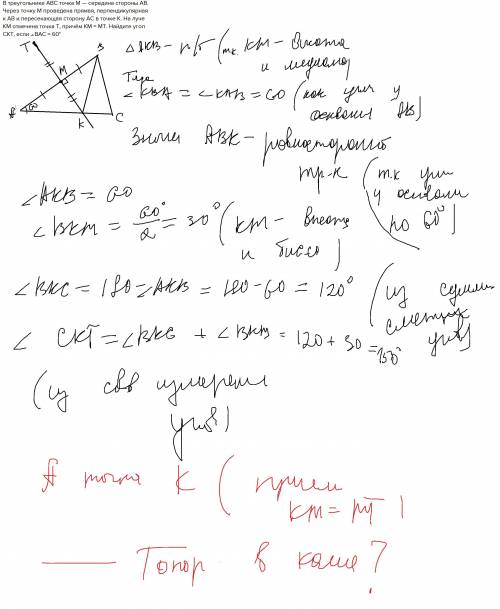 В треугольнике ABC точка M — середина стороны AB.
Через точку M проведена прямая, перпендикулярная
к AB и пересекающая сторону AC в точке K. На луче
KM отмечена точка T, причём KM = MT. Найдите угол
CKT, если ∠BAC = 60°
T
B
M
A
60°
K
C
△ AKB – р/б (тк KM – высота
и медиана)
Тогда
∠ KBA = ∠ KAB = 60 (как углы у
основания AB)
Значит ABK – равносторонний
тр-к (тк углы
у основания
по 60°)
∠AKB = 60
∠BKM = 60°/2 = 30° (KM – высота
и бисс)
∠BKC = 180 – ∠AKB = 180 – 60 = 120° (из суммы
смежных
углов)
∠ CKT = ∠BKC + ∠BKM = 120 + 30 = 150°
(из свв измерения
углов)
А точка K (причём
KM = MT)
— Топор в каше?